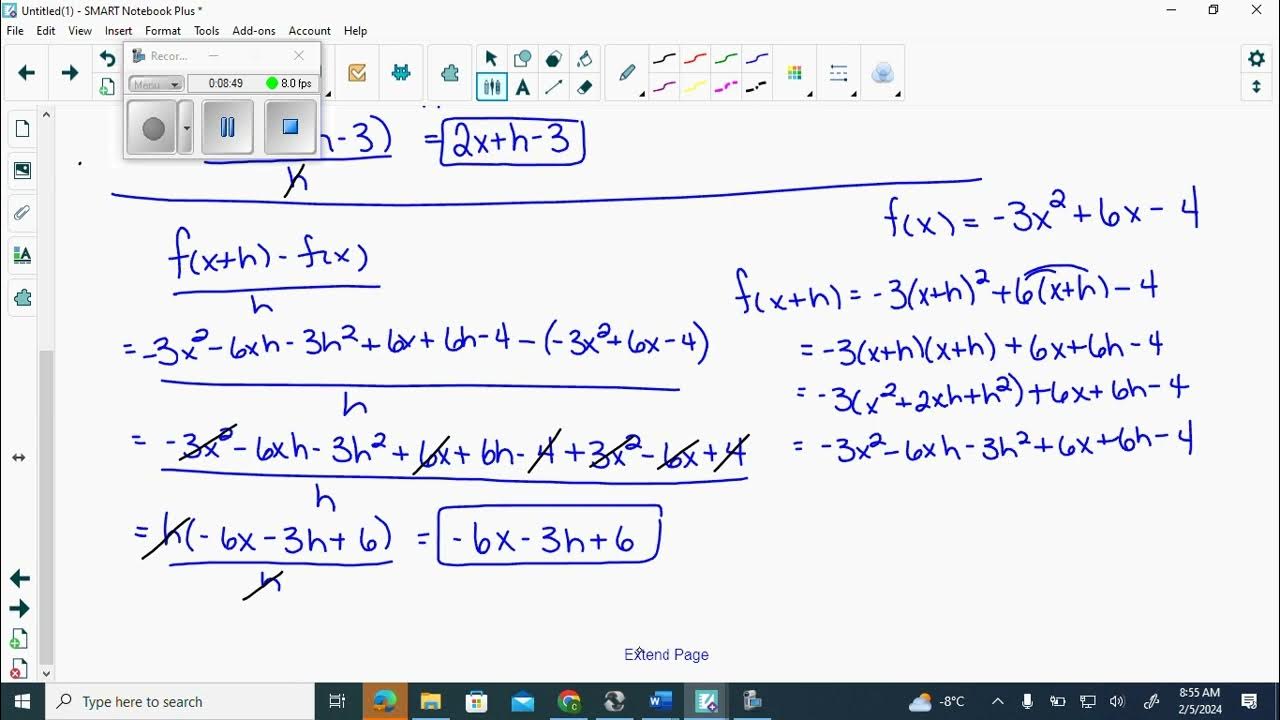 Untitled(1) - SMART Notebook Plus *
File Edit View Insert Format Tools Add-ons Account Help
Recor...
Menu 0:08:49 8.0 fps
h-3) = 2x+h-3
h
f(x) = -3x² + 6x - 4
f(x+h) - f(x)
h
f(x+h) = -3(x+h)² + 6(x+h) - 4
= -3x² - 6xh - 3h² + 6x + 6h - 4 - (-3x² + 6x - 4)
h
= -3(x+h)(x+h) + 6x + 6h - 4
= -3(x² + 2xh + h²) + 6x + 6h - 4
= -3x² - 6xh - 3h² + 6x + 6h - 4 + 3x² - 6x + 4
h
= -3x² - 6xh - 3h² + 6x + 6h - 4
= h(-6x - 3h + 6) = -6x - 3h + 6
h
Extend Page
Type here to search
-8°C
8:55 AM
2/5/2024